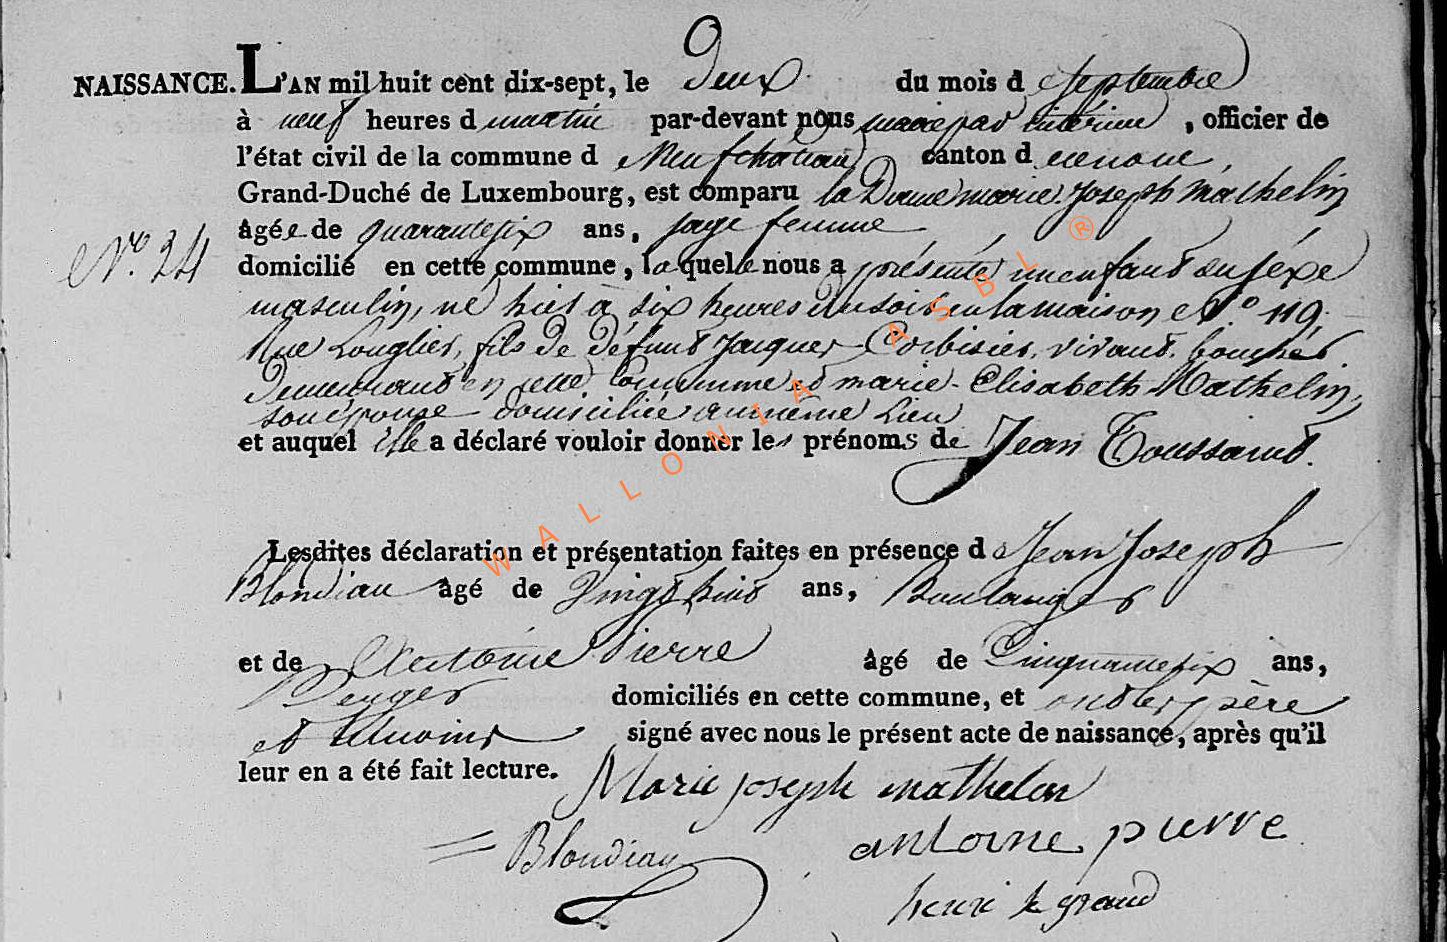 NAISSANCE. L'AN mil huit cent dix-sept, le Deux du mois d septembre
à neuf heures d matin par-devant nous maire par interim, officier de
l'état civil de la commune d Neufchateau canton d
Grand-Duché de Luxembourg, est comparu la Dame marie Joseph Mathelin
âgée de quarante six ans, sage femme
N.o 24
domicilié en cette commune, laquele nous a présenté un enfant du séxe
masculin, né hier à six heures du soir en la maison N.o 119.
Rue Longlier, fils de défunt Jacques Corbisier, vivant boucher
demeurant en cette Commune et marie-Elisabeth Mathelin,
son épouse domiciliée au même Lieu
et auquel Elle a déclaré vouloir donner les prénoms de Jean Toussaint.
Lesdites déclaration et présentation faites en présence d e Jean Joseph
Blondiau âgé de Vingt huit ans, Boulanger
et de Antoine Pierre âgé de Cinquante six ans,
domiciliés en cette commune, et ont les père
et témoins signé avec nous le présent acte de naissance, après qu'il
leur en a été fait lecture.
Marie joseph mathelon
Blondiau
antoine pierre
henri le grand
WALLONIA ASBL ®